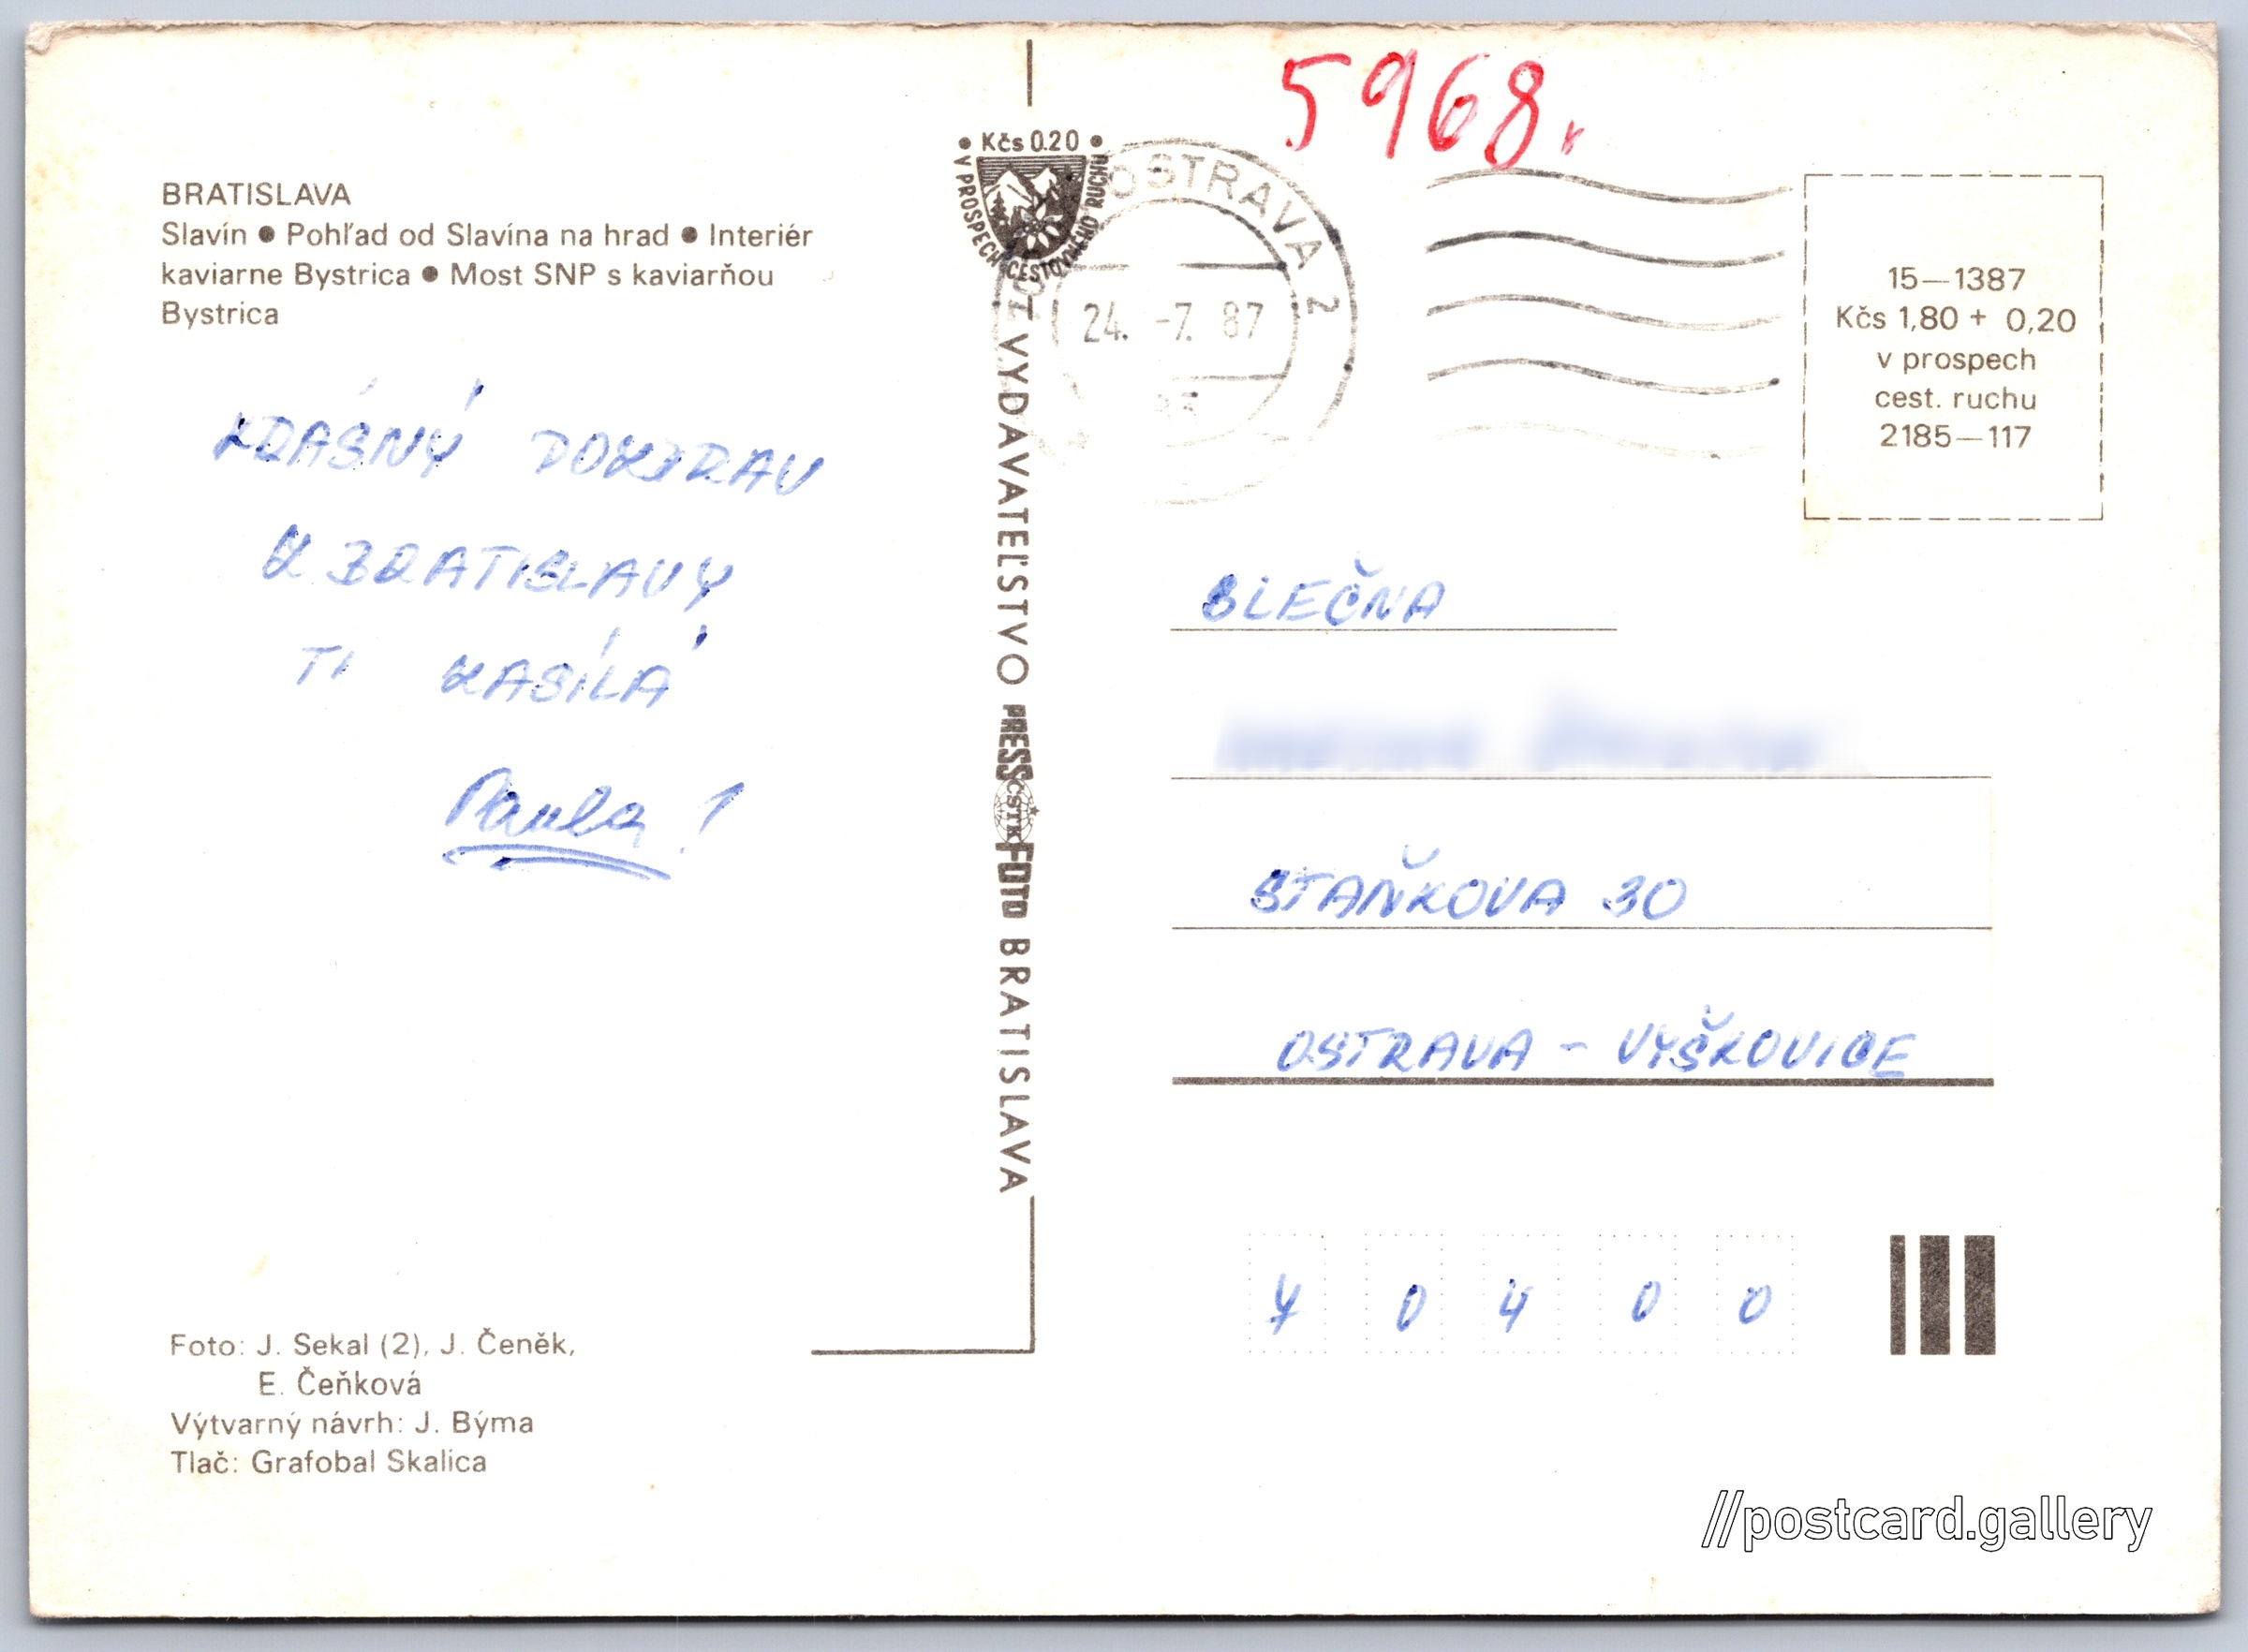 BRATISLAVA
Slavín ● Pohľad od Slavína na hrad ● Interiér
kaviarne Bystrica ● Most SNP s kaviarňou
Bystrica
KRÁSNÝ POZDRAV
Z BRATISLAVY
TI ZASÍLÁ
Paula!
Foto: J. Sekal (2), J. Čeněk,
E. Čeňková
Výtvarný návrh: J. Býma
Tlač: Grafobal Skalica
• Kčs 0.20 •
V PROSPECH CESTOVNÉHO RUCHU
VYDAVATEĽSTVO PRESSFOTO BRATISLAVA
ČSTK
5968.
OSTRAVA 2
24. -7. 87
15—1387
Kčs 1,80 + 0,20
v prospech
cest. ruchu
2185—117
SLEČNA
STAŇKOVA 30
OSTRAVA - VÝŠKOVICE
70400
//postcard.gallery